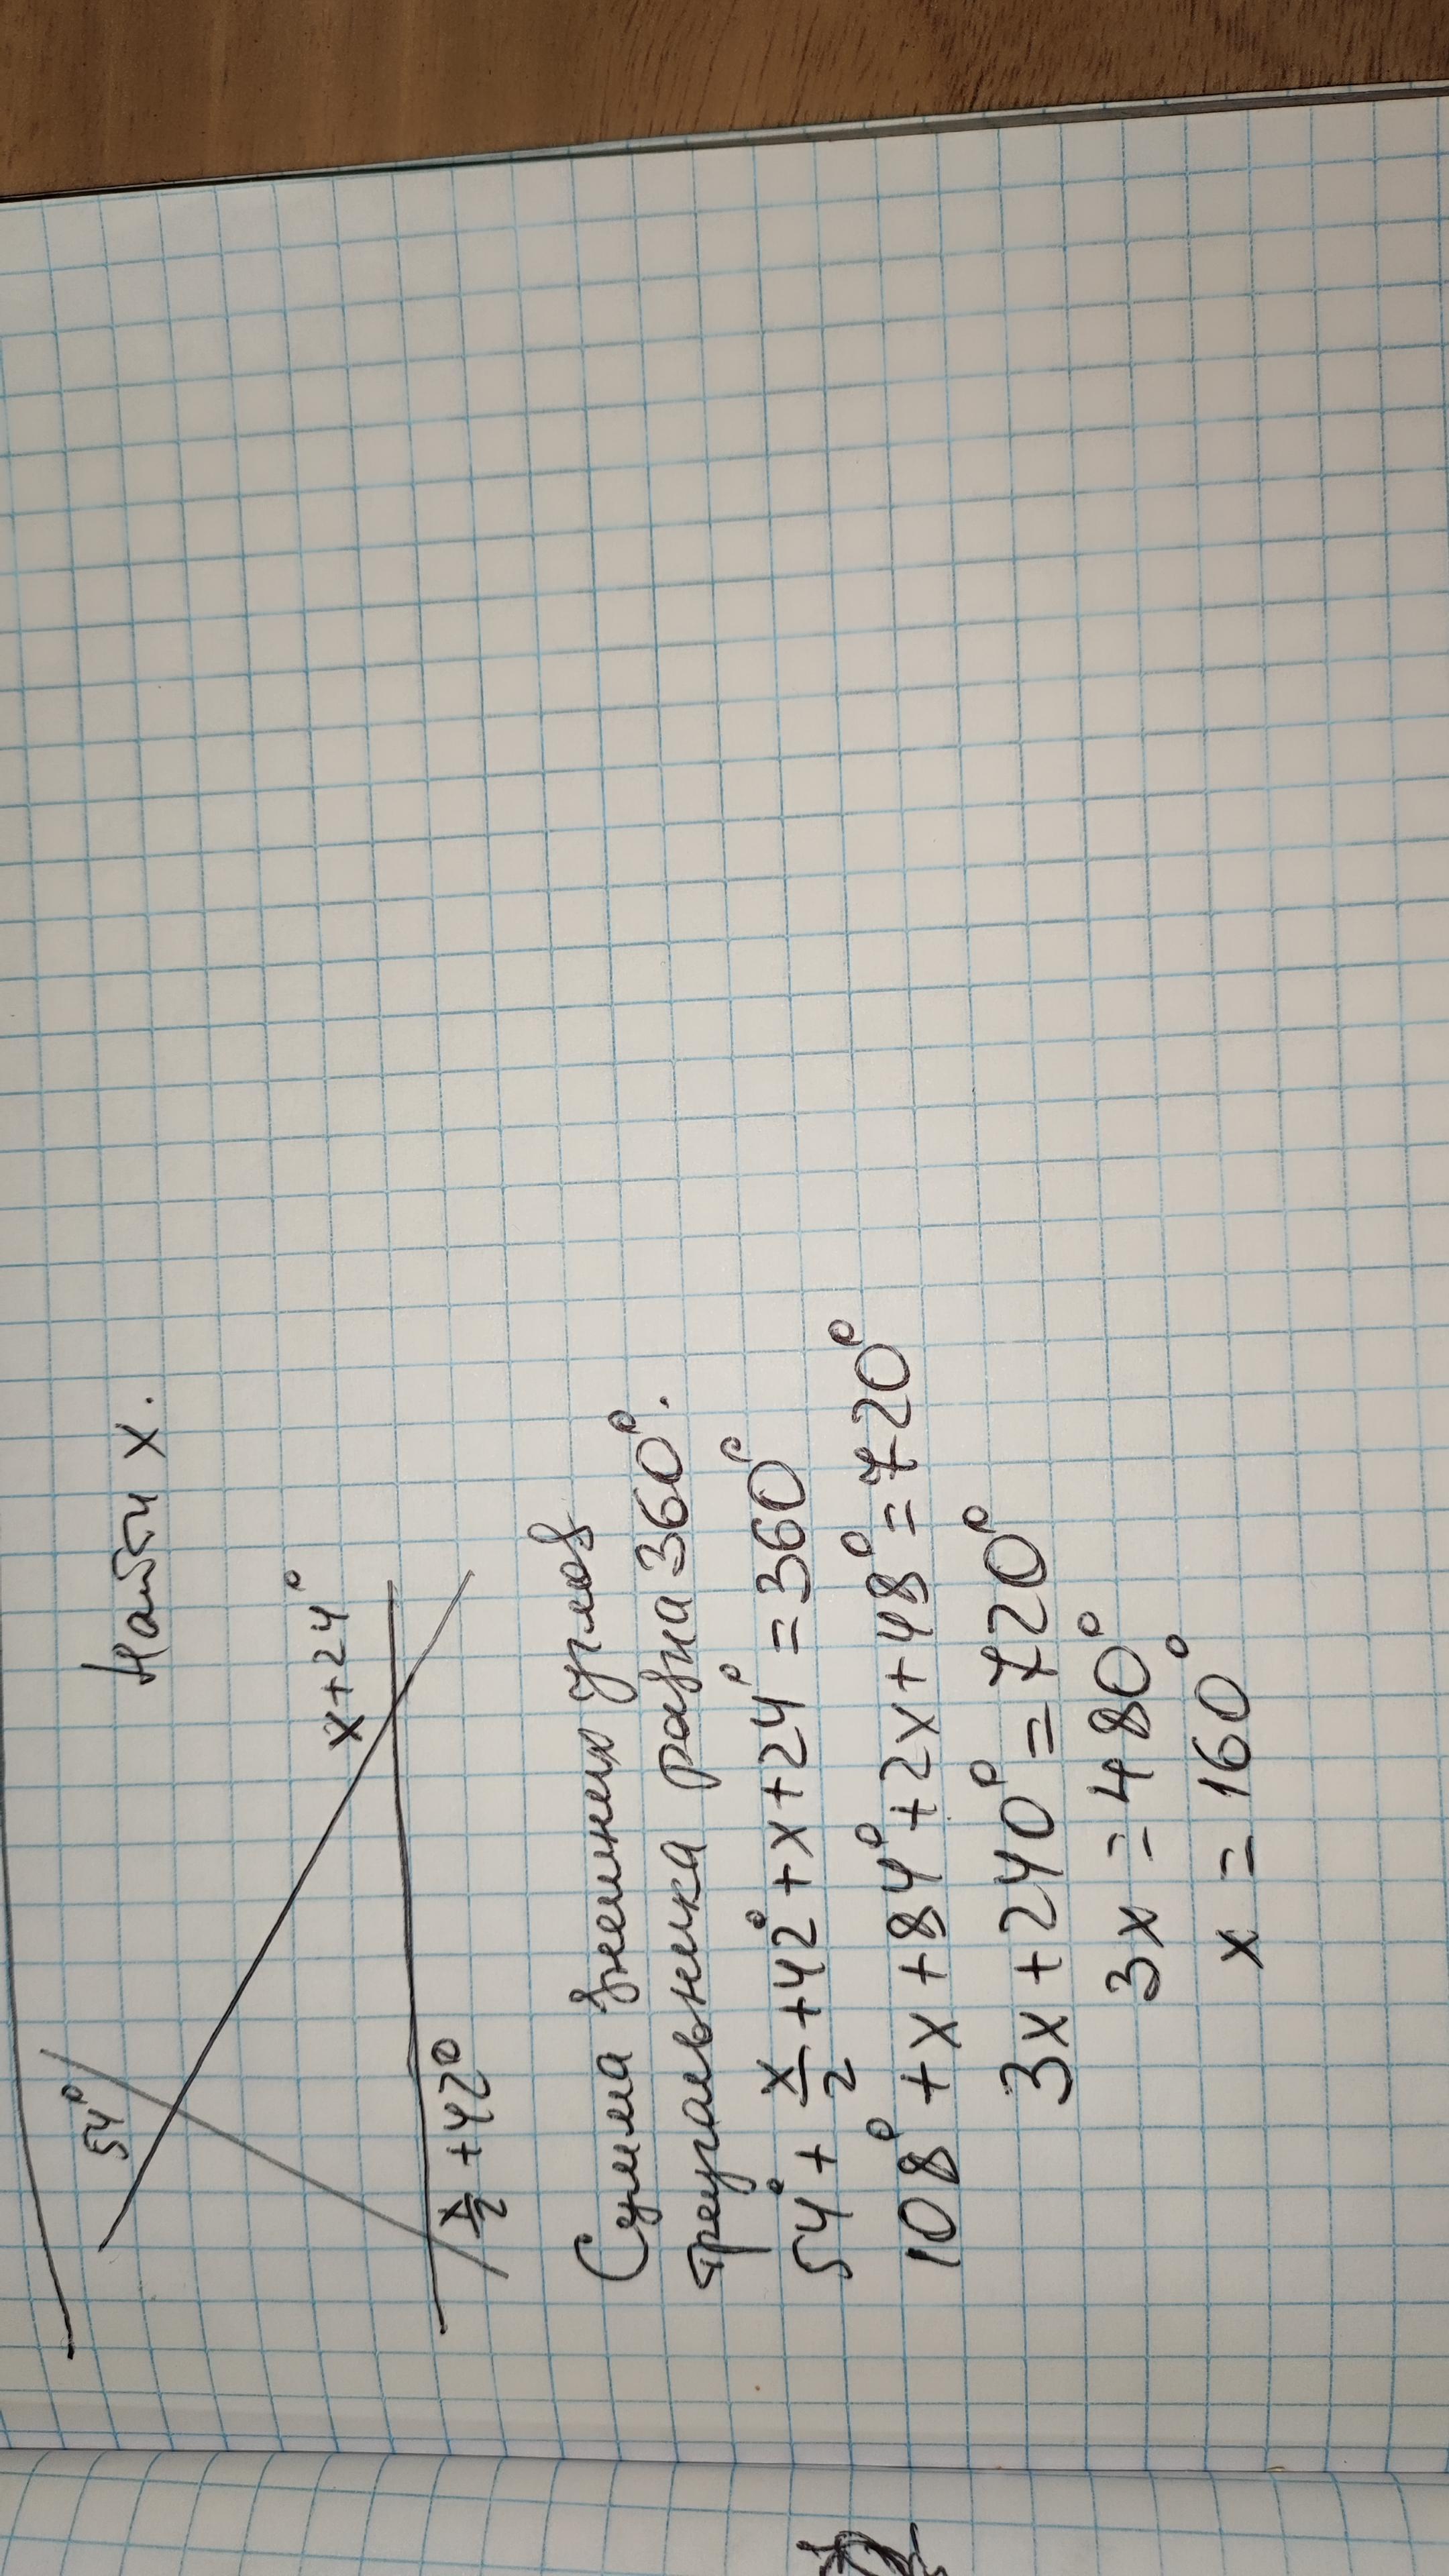 Найти x.
54°
x+24°
x/2 +42°
Сумма внешних углов
треугольника равна 360°.
54°+ x/2 +42°+x+24°=360°
108°+x+84°+2x+48°=720°
3x+240°=720°
3x=480°
x=160°